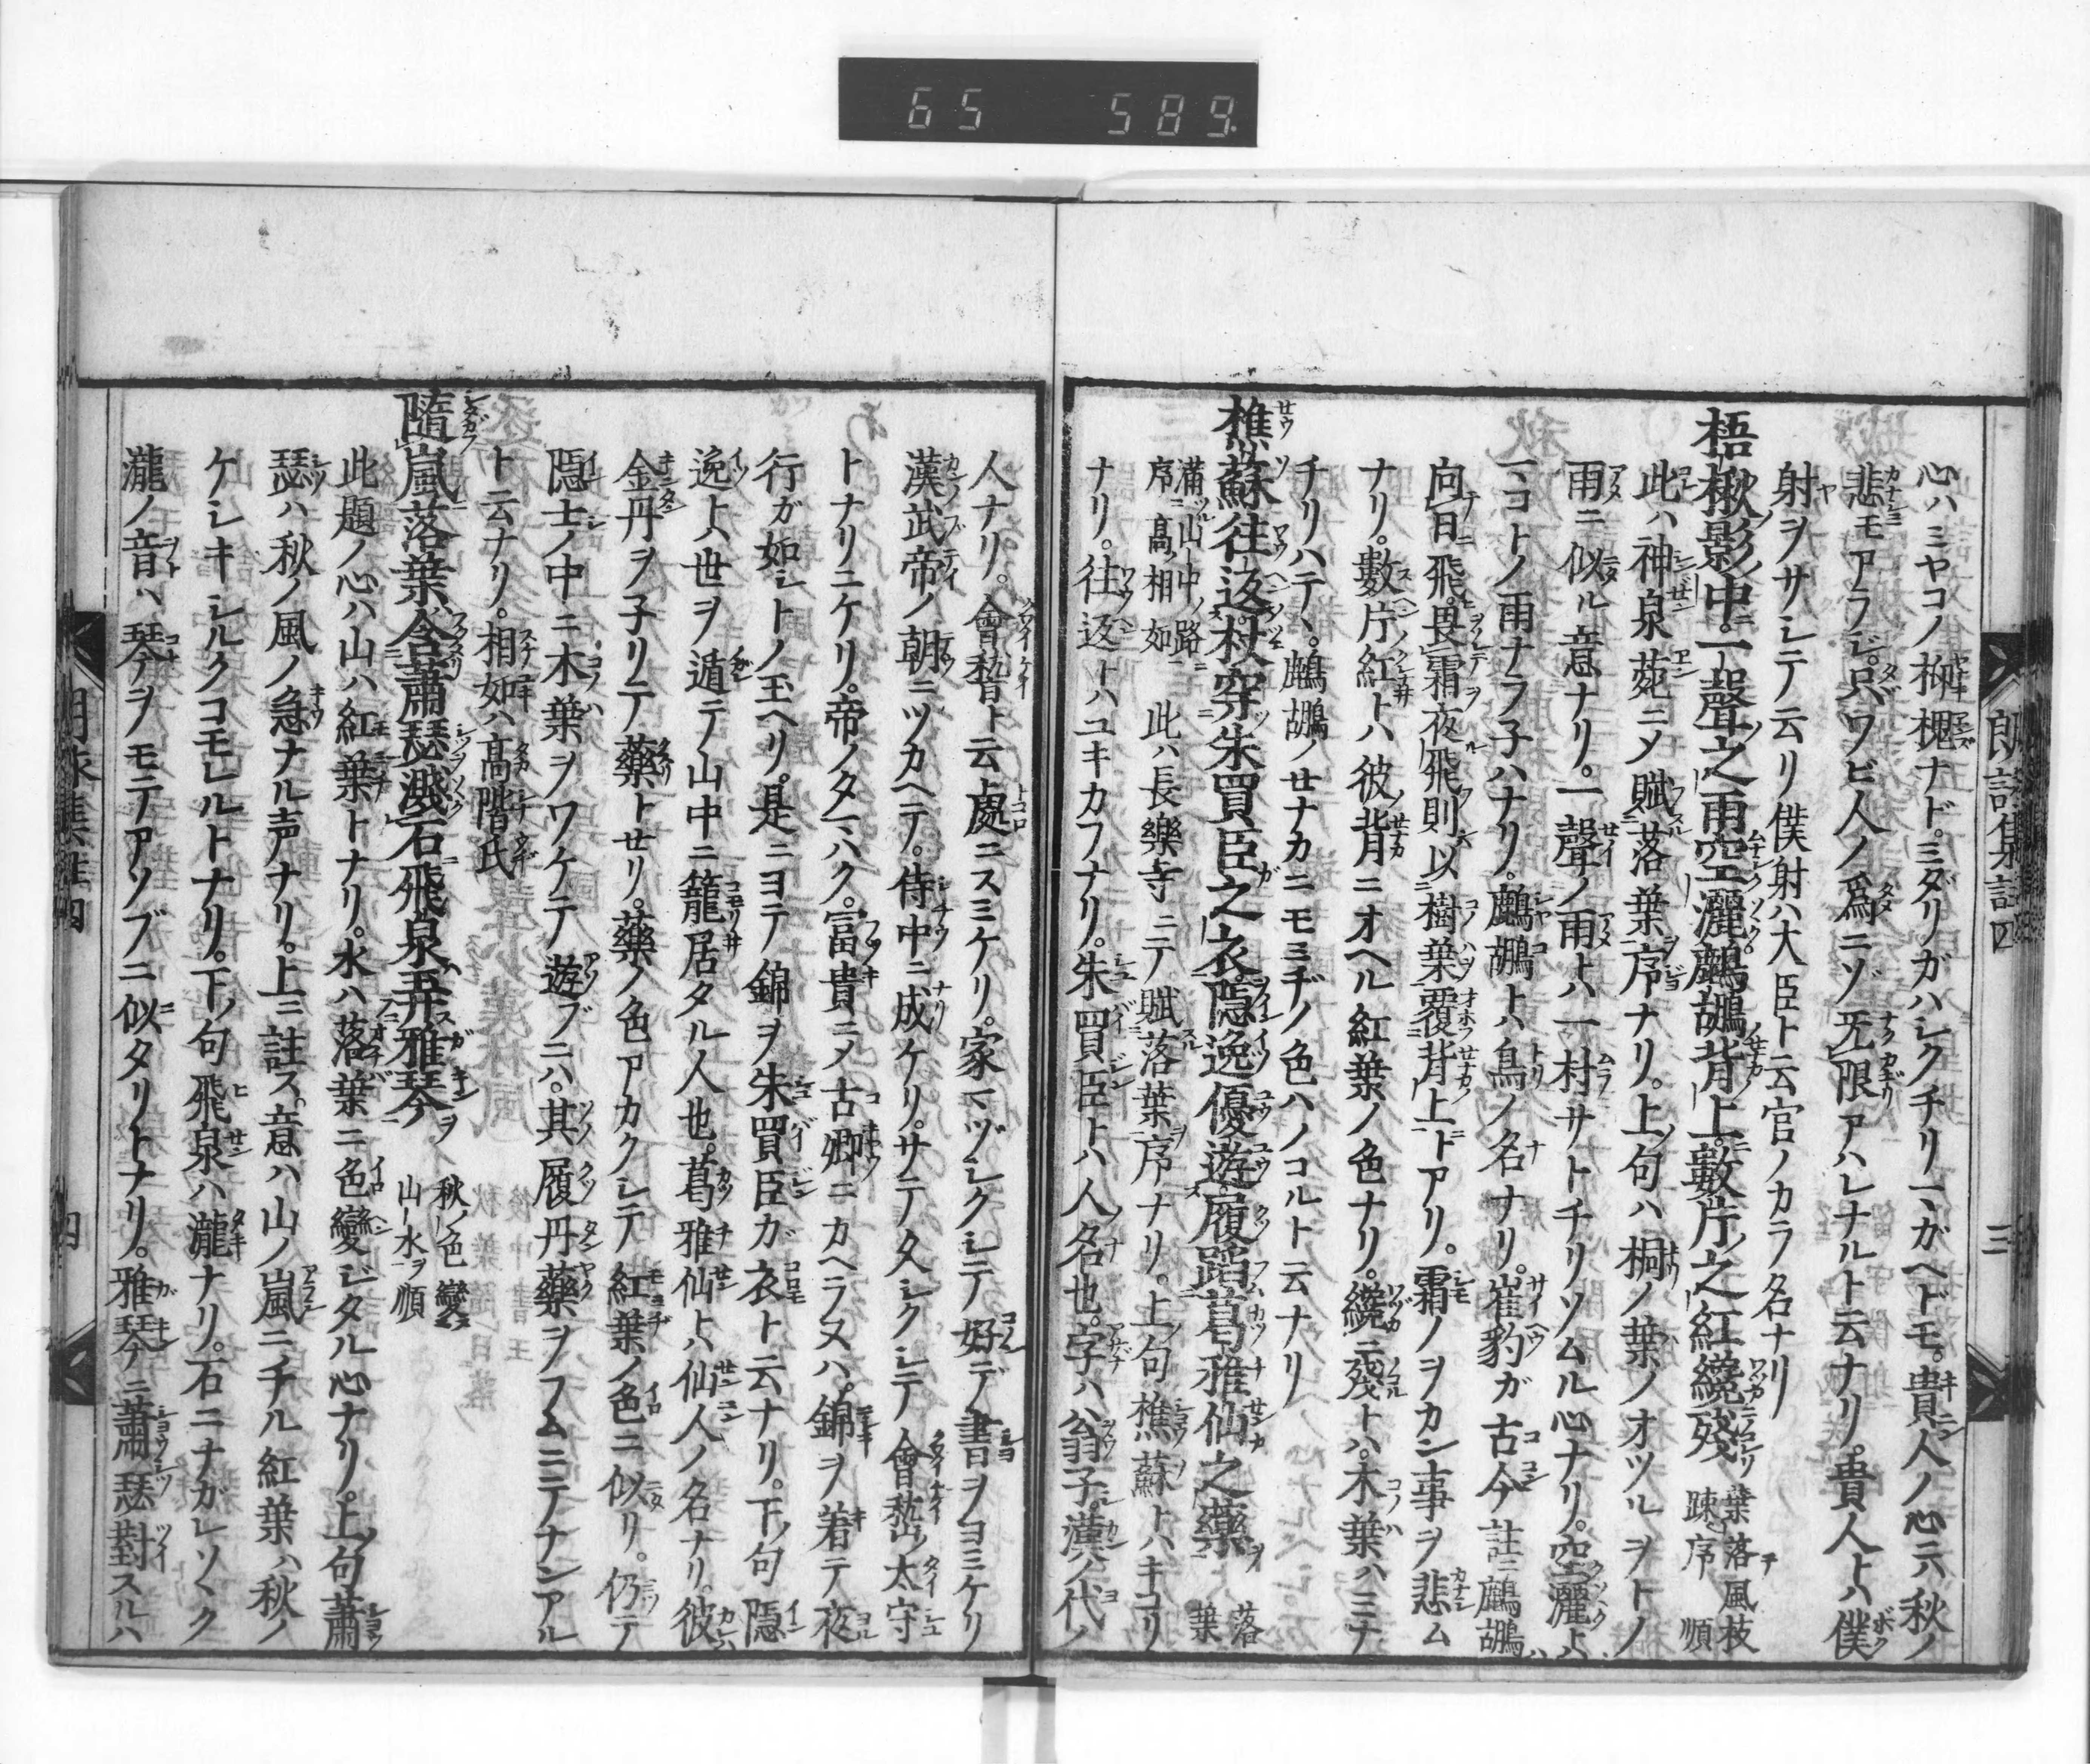 65 589.
心ハミヤコノ柳槐ナド。ミダリガハシクチリマガヘドモ。貴人ノ心ニハ秋ノ
悲モアラジ。只ワビ人ノ爲ニゾ无限アハレナルト云ナリ。貴人トハ僕
射ヲサシテ云リ僕射ハ大臣ト云官ノカラ名ナリ
梧楸影中。一聲之雨空灑。鷓鴣背上。數片之紅纔殘 葉落風枝疎序 順
此ハ神泉苑ニメ賦落葉序ナリ。上句ハ桐ノ葉ノオツルヲトノ
雨ニ似ル意ナリ。一聲ノ雨トハ一村サトチリソムル心ナリ。空灑トハ
マコトノ雨ナラ子ハナリ。鷓鴣トハ鳥ノ名ナリ。崔豹ガ古今註ニ鷓鴣ハ
向日飛。畏霜夜飛則以樹葉覆背上トアリ。霜ノヲカン事ヲ悲ム
ナリ。數片紅トハ彼背ニオヘル紅葉ノ色ナリ。纔ニ殘トハ。木葉ハミナ
チリハテヽ。鷓鴣ノセナカニモミヂノ色ハノコルト云ナリ
樵蘇往返。杖穿朱買臣之衣。隠逸優遊。履踏葛稚仙之藥 落葉
滿山中路序 高相如 此ハ長樂寺ニテ賦落葉序ナリ。上句樵蘇トハキコリ
ナリ。往返トハユキカフナリ。朱買臣トハ人名也。字ハ翁子。漢ノ代ノ
朗詠集註四 三
人ナリ。會稽ト云處ニスミケリ。家マヅシクシテ好デ書ヲヨミケリ
漢武帝ノ朝ニツカヘテ。侍中ニ成ケリ。サテ久シクシテ會稽ノ太守
トナリニケリ。帝ノタマハク。富貴ニメ古郷ニカヘラヌハ。錦ヲ着テ夜
行ガ如シトノ玉ヘリ。是ニヨテ錦ヲ朱買臣ガ衣ト云ナリ。下句隠
逸トハ世ヲ遁テ山中ニ籠居タル人也。葛稚仙トハ仙人ノ名ナリ。彼
金丹ヲ子リテ藥トセリ。藥ノ色アカクシテ紅葉ノ色ニ似リ。仍テ
隠士ノ中ニ木葉ヲワケテ遊ブニハ。其履丹藥ヲフムニテナンアル
ト云ナリ。相如ハ高階氏
隨嵐落葉含蕭瑟濺石飛泉弄雅琴 秋色變山水 順
此題ノ心ハ山ハ紅葉トナリ。水ハ落葉ニ色變ジタル心ナリ。上句蕭
瑟ハ秋ノ風ノ急ナル声ナリ。上ニ註ス。意ハ山ノ嵐ニチル紅葉ハ秋ノ
ケシキシルクコモレルトナリ。下ノ句飛泉ハ瀧ナリ。石ニナガレソヽク
瀧ノ音ハ琴ヲモテアソブニ似タリトナリ。雅琴ニ蕭瑟對スルハ
四